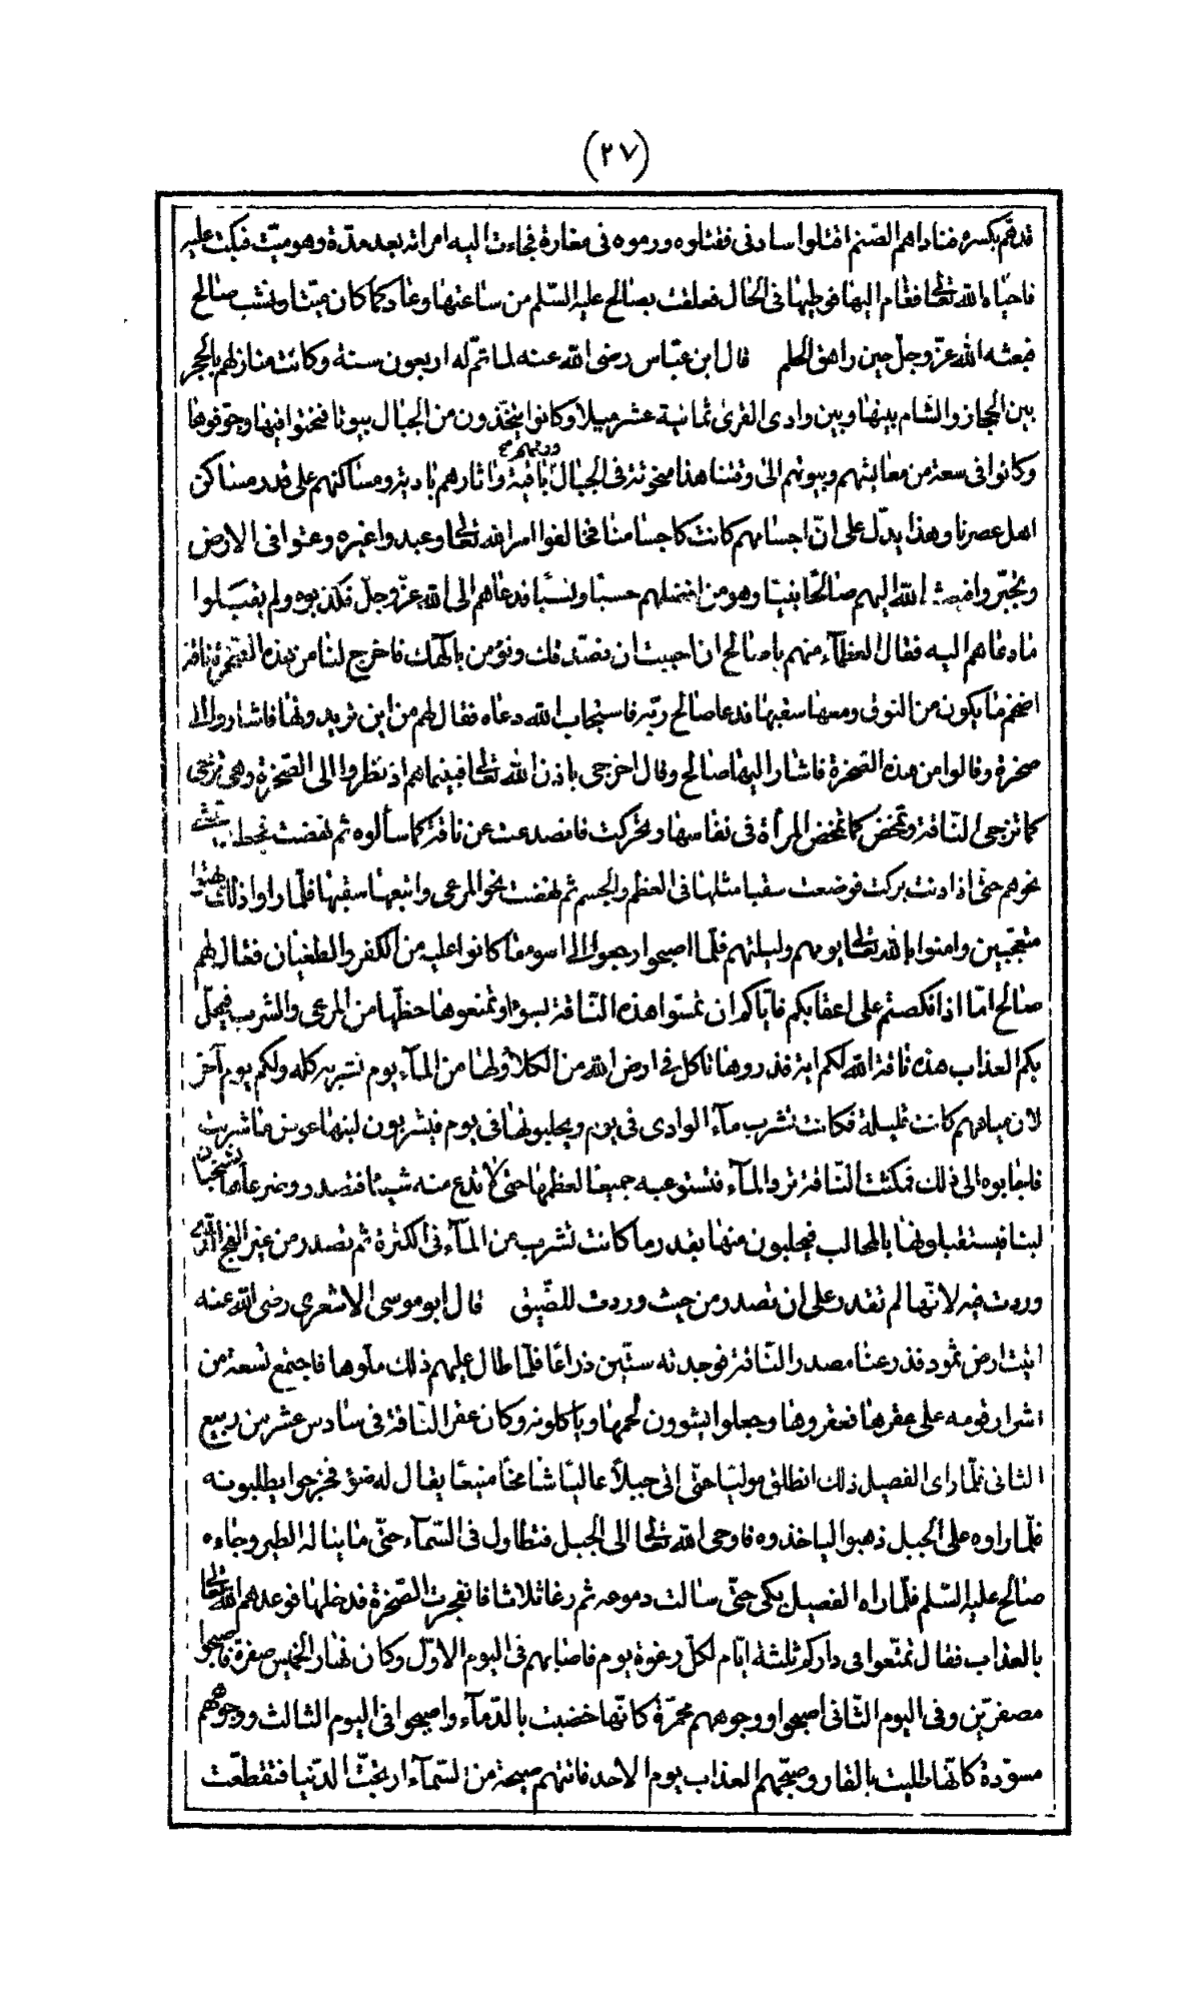 (٢٧)
قدهمّ بكسره فناداهم الصّنم اقتلوا سادنى فقتلوه ورموه فى مغارة فجاءت اليه امراته بعد مدّة وهو ميّت فبكت عليه
فاحياه الله تعالى فقام اليها فوطيها فى الحال فعلقت بصالح عليه السّلم من ساعتها وعاد كما كان ميّتا ونشب صالح
فبعثه الله عزّ وجلّ حين راهق الحلم قال ابن عبّاس رضى الله عنه لما تمّ له اربعون سنة وكانت منازلهم بالحجر
بين الحجاز والشام بينها وبين وادى القرى ثمانية عشر ميلا وكانوا يتّخذون من الجبال بيوتا فنحتوا فيها وجوّفوها
وكانوا فى سعة من معايشهم وبيوتهم الى وقتنا هذا منحوتة فى الجبال باقية واثارهم بادية ومساكنهم على قدر مساكن
اهل عصرنا وهذا يدلّ على انّ اجسامهم كانت كاجسامنا فخالفوا امر الله تعالى وعبدوا غيره وعثوا فى الارض
وتجبّروا فبعث الله اليهم صالحًا نبيّا وهو من افضلهم حسبًا ونسبًا فدعاهم الى الله عزّ وجلّ فكذبوه ولم يقبلوا
ما دعاهم اليه فقال العظمآء منهم يا صالح ان احببت ان نصدّقك ونؤمن بالهك فاخرج لنا من هذه الصّخرة ناقة
اضخم ما يكون من النوق ومعها سقبها فدعا صالح ربّه فاستجاب الله دعاه فقال لهم من اين تريدونها فاشاروا الى
صخرة وقالوا من هذه الصّخرة فاشار اليها صالح وقال اخرجى باذن الله تعالى فبينما هم اذ نظروا الى الصّخرة وهى تزجى
كما تزجى النّاقة وتمخض كما تمخض المرأة فى نفاسها وتحركت فانصدعت عن ناقة كما سألوه ثم نهضت
نحوهم حتى اذا دنت بركت فوضعت سقبا مثلها فى العظم والجسم ثم نهضت نحو المرعى واتبعها سقبها فلمّا راوا ذلك بهتوا
متعجّبين وامنوا بالله تعالى يومهم وليلتهم فلمّا اصبحوا رجعوا الى اسو مما كانوا عليه من الكفر والطغيان فقال لهم
صالح امّا اذا نكصتم على اعقابكم فايّاكم ان تمسّوا هذه النّاقة بسوء او تمنعوها حظّها من المرعى والشرب فيحلّ
بكم العذاب هذه ناقة الله لكم اية فذروها تاكل فى ارض الله من الكلأ ولها من المآء يوم تشربه كله ولكم يوم آخر
لان مياههم كانت قليلة فكانت تشرب مآء الوادى فى يوم ويحلبونها فى يوم فيشربون لبنها عوض ما شربت
فاجابوه الى ذلك فمكثت النّاقة ترد المآء فتستوعبه جميعًا لعظمها حتى لا تدع منه شيئًا فتصدر وضرعاها تشخبان
لبنا فيستقبلونها بالمحالب فيحلبون منها بقدر ما كانت تشرب من المآء فى الكثرة ثم تصدر من غير الفجّ الّذى
وردت فيه لانّها لم تقدر على ان تصدر من حيث وردت للضّيق قال ابو موسى الاشعرى رضى الله عنه
اتيت ارض ثمود فذرعنا مصدر النّاقة فوجدته ستّين ذراعًا فلمّا طال عليهم ذلك ملّوها فاجتمع تسعة من
اشرار قومه على عقرها فعقروها وجعلوا يشوون لحمها وياكلونه وكان عقر النّاقة فى سادس عشر من ربيع
الثانى فلمّا راى الفصيل ذلك انطلق موليًا حتّى اتى جبلاً عاليًا شامخًا منيعًا يقال له ضؤ فخرجوا يطلبونه
فلمّا راوه على الجبل ذهبوا لياخذوه فاوحى الله تعالى الى الجبل فتطاول فى السّمآء حتّى ما يناله الطير وجاءه
صالح عليه السّلم فلمّا راه الفصيل بكى حتّى سالت دموعه ثم رغا ثلاثا فانفجرت الصّخرة فدخلها فوعدهم الله تعالى
بالعذاب فقال تمتّعوا فى داركم ثلثة ايّام لكلّ رغوة يوم فاصابهم فى اليوم الاوّل وكان نهار الخميس صفرة فاصبحوا
مصفرّين وفى اليوم الثّانى اصبحوا ووجوههم محمرّة كانّها خضبت بالدّمآء واصبحوا فى اليوم الثالث ووجوههم
مسوّدة كانّها طليت بالقار وصبّحهم العذاب يوم الاحد فاتتهم صيحة من السّمآء ارتجّت الدّنيا فتقطّعت